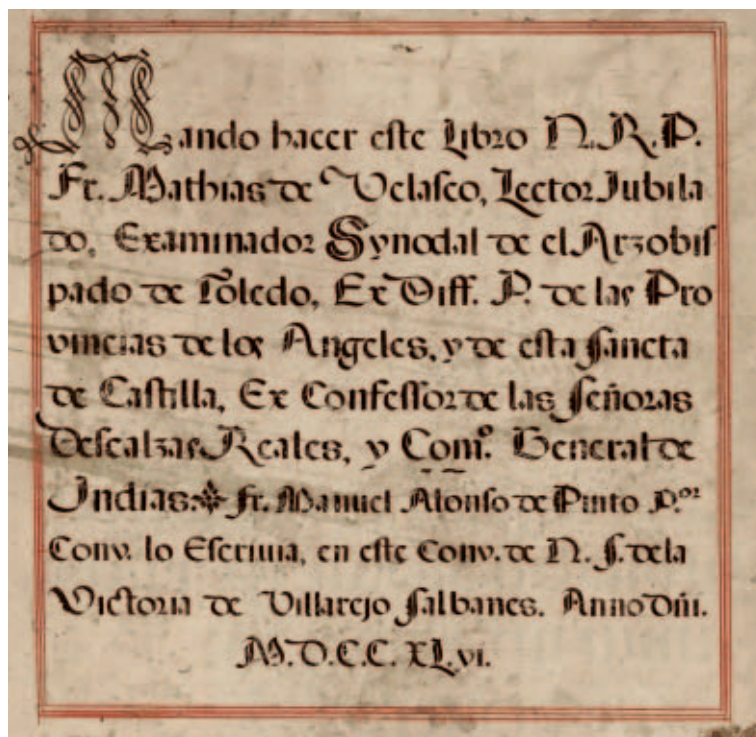 Mando hacer este Libro N. R. P.
Fr. Mathias de Velasco, Lector Jubila
do, Examinador Synodal de el Arzobis
pado de Toledo, Ex Diff. P. de las Pro
vincias de los Angeles, y de esta sancta
de Castilla, Ex Confessor de las señoras
Descalzas Reales, y Com.º General de
Indias. Fr. Manuel Alonso de Pinto P.or
Conv. lo Escriuia, en este Conv. de N. S. de la
Victoria de Villarejo salbanes. Anno Dñi.
M.D.C.C.XL.vi.